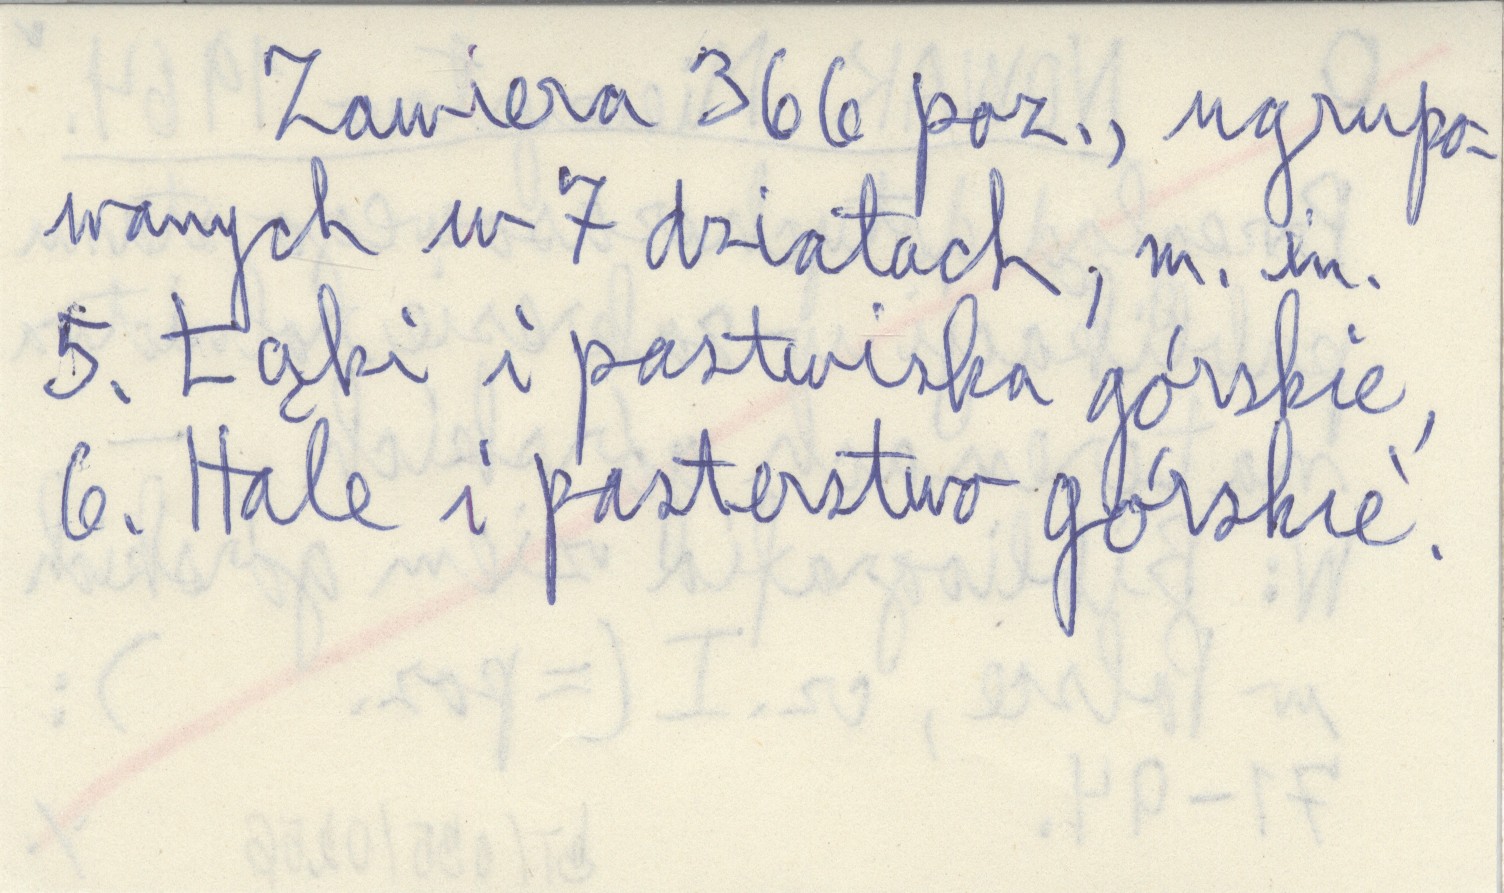 Zawiera 366 poz., ugrupo-
wanych w 7 działach, m. in.
5. Łąki i pastwiska górskie,
6. Hale i pasterstwo górskie.